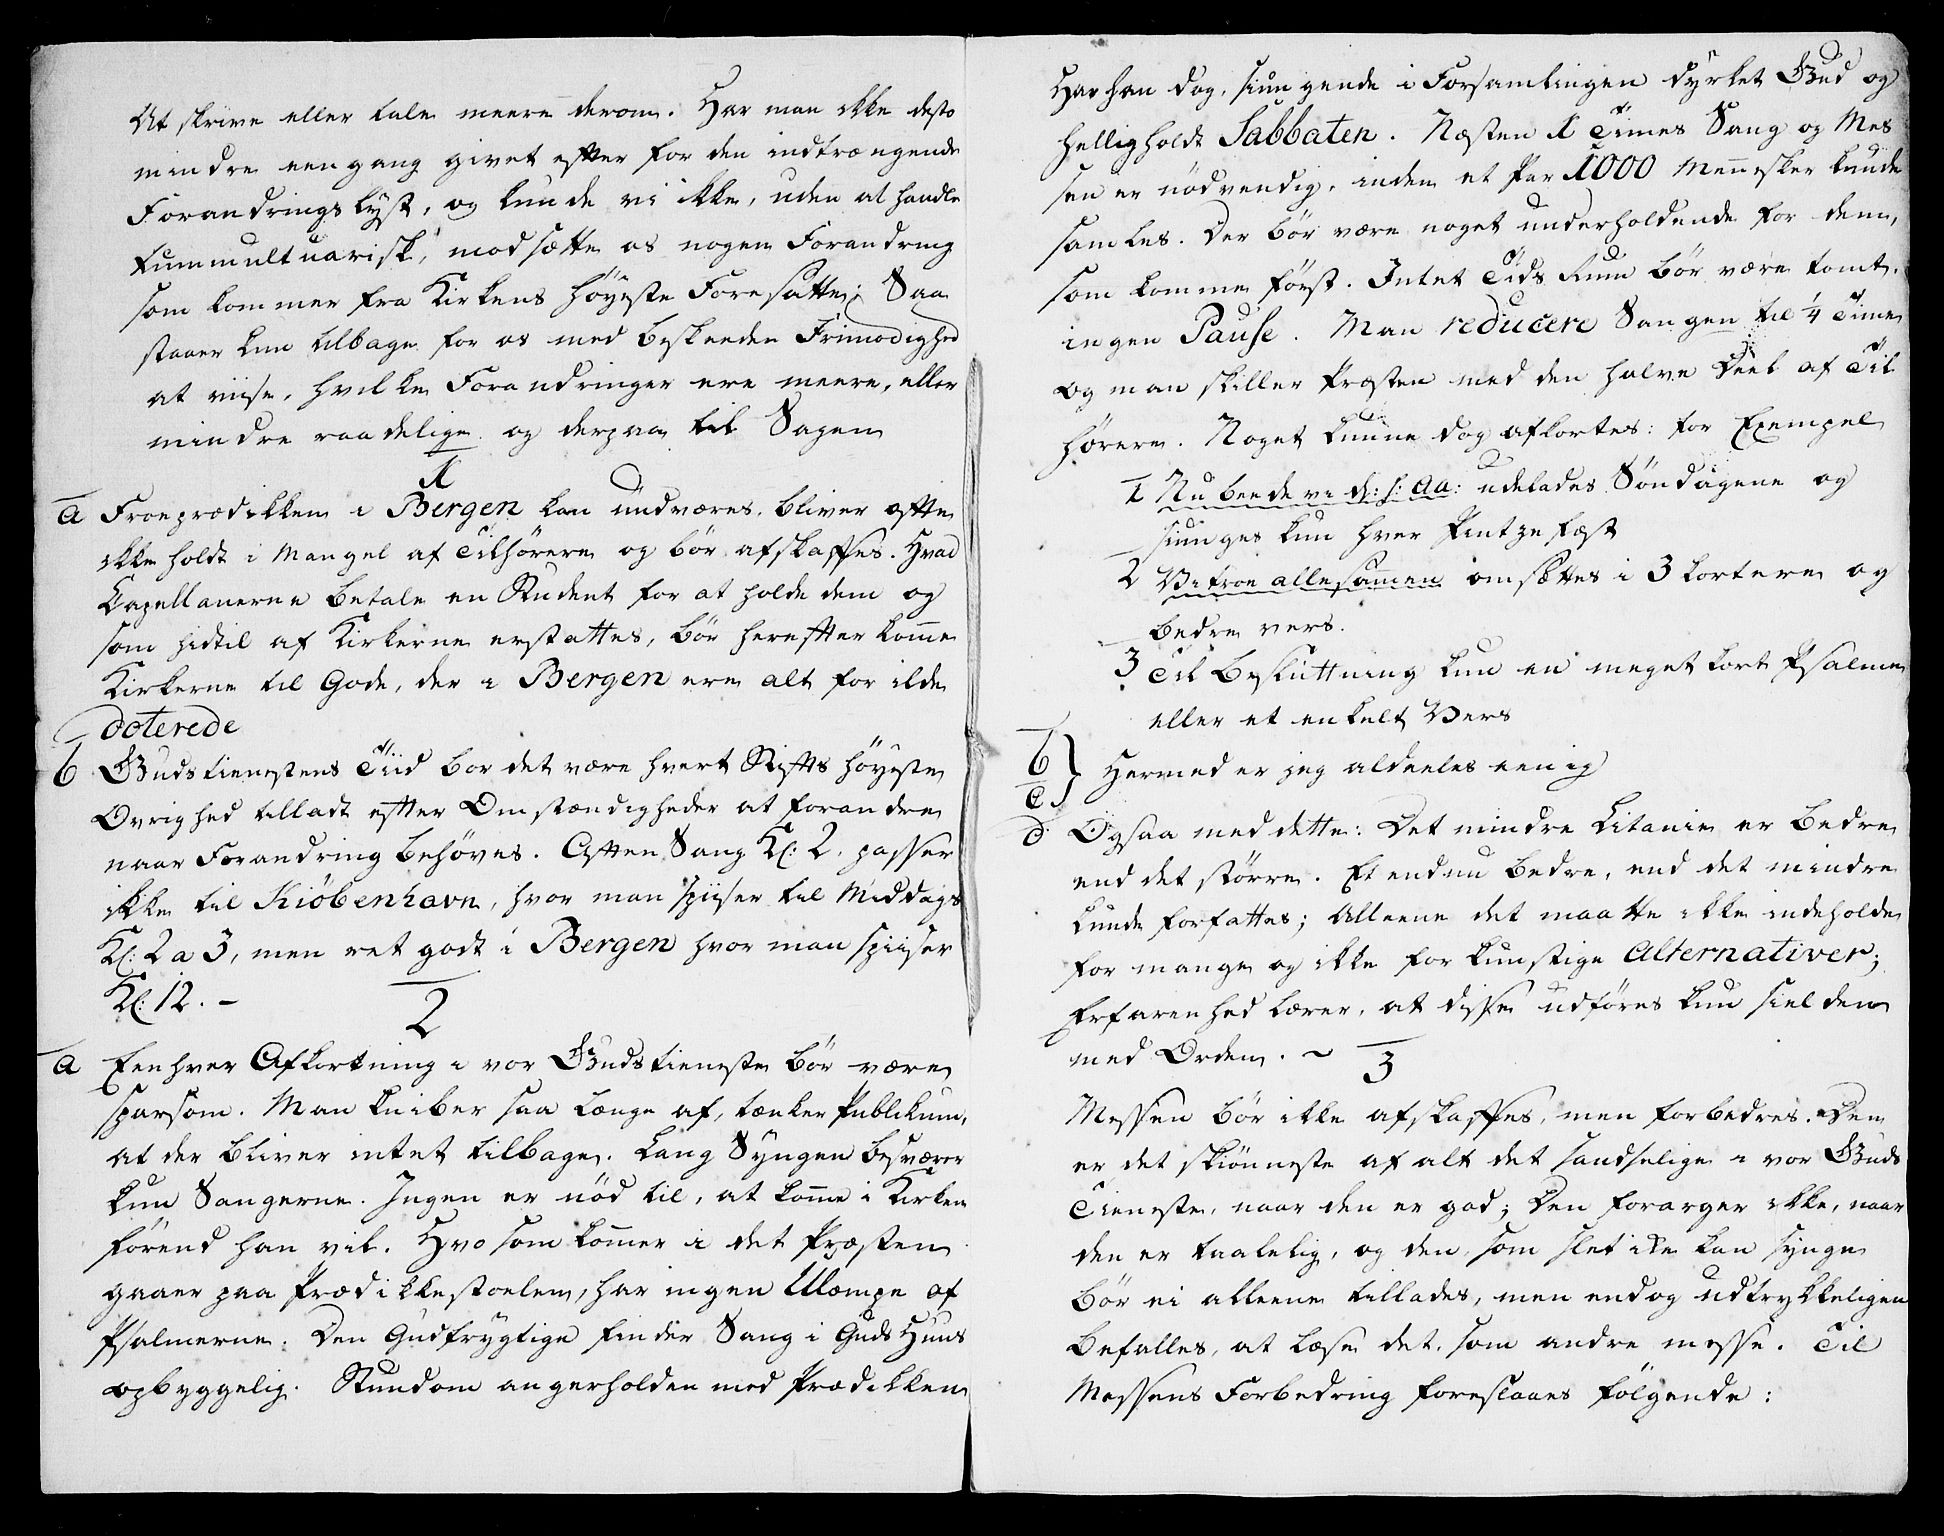 At skrive eller tale meere derom. Har man ikke desto
mindre eengang givet efter for den indtrængende
Forandrings lyst, og kunde vi ikke, uden at handle
tummultuarisk, modsætte os nogen Forandring
som kommer fra Kirkens høyeste Foresatte; Saa
staaer kun tilbage for os med beskeeden Frimodighed
at viise, hvilke Forandringer ere meere, eller
mindre raadelige og derpaa til Sagen
1
a Froeprædikken i Bergen kan undværes, bliver ofte
ikke holdt i Mangel af Tilhörere og bör afskaffes. Hvad
Capellanerne betale en Student for at holde dem og
som hidtil af Kirkerne erstattes, bör herefter komme
Kirkerne til Gode, der i Bergen ere alt for ilde
doterede
b Gudstienestens Tiid bor det være hvert Stifts höyeste
Ovrighed tilladt efter Omstændigheder at forandre
naar Forandring behöves. Aften Sang Kl: 2. passer
ikke til Kiöbenhavn, hvor man spiiser til Middags
Kl: 2 a 3, men ret godt i Bergen hvor man spiiser
Kl: 12. -
2
a Eenhver Afkortning i vor Gudstieneste bör være
sparsom. Man kniber saa længe af, tænker Publikum,
at der bliver intet tilbage. Lang Syngen besværer
kun Sangerne. Ingen er nöd til, at komme i Kirken
förend han vil. Hvo som kommer i det Præsten
gaaer paa Prædikkestoelen, har ingen Ulæmpe af
Psalmerne. Den Gudfrygtige finder Sang i Guds Huus
opbyggelig. Stundom angerholden med Prædikken
Har han dog, siungende i Forsamlingen dyrket Gud og
helligholdt Sabbaten. Næsten 1 Times Sang og Mes
sen er nödvendig, inden et Par 1000 Mennesker kunde
samles. Der bör være noget underholdende for dem,
som komme först. Intet Tids Rum bör være tomt.
ingen Pause. Man reducere Sangen til 1/4 Time
og man skiller Præsten med den halve Deel af Til
hörere. Noget kunne dog afkortes: for Exempel
1 Nu beede vi d: h: Aa: udelades Söndagene og
siunges kun hver Pintze fest
2 Vi troe allesammen omsættes i 3 kortere og
bedre vers.
3 Til Beslutning kun en meget kort Psalme
eller et enkelt Vers
b
c } Hermed er jeg aldeeles eenig
d Ogsaa med dette: Det mindre Litanie er bedre
end det större. Et endnu bedre, end det mindre
kunde forfattes; Alleene det maatte ikke indeholde
for mange og ikke for kunstige Alternativer;
Erfarenhed lærer, at disse udföres kun sielden
med Orden. ~
3
Messen bör ikke afskaffes, men forbedres. Den
er det skiönneste af alt det sandselige i vor Guds
Tieneste, naar den er god; Den forarger ikke, naar
den er taalelig, og den, som slet ikke kan synge
bör ei alleene tillades, men endog udtrykkeligen
befalles, at læse det, som andre messe. Til
Messens Forbedring foreslaaes fölgende: